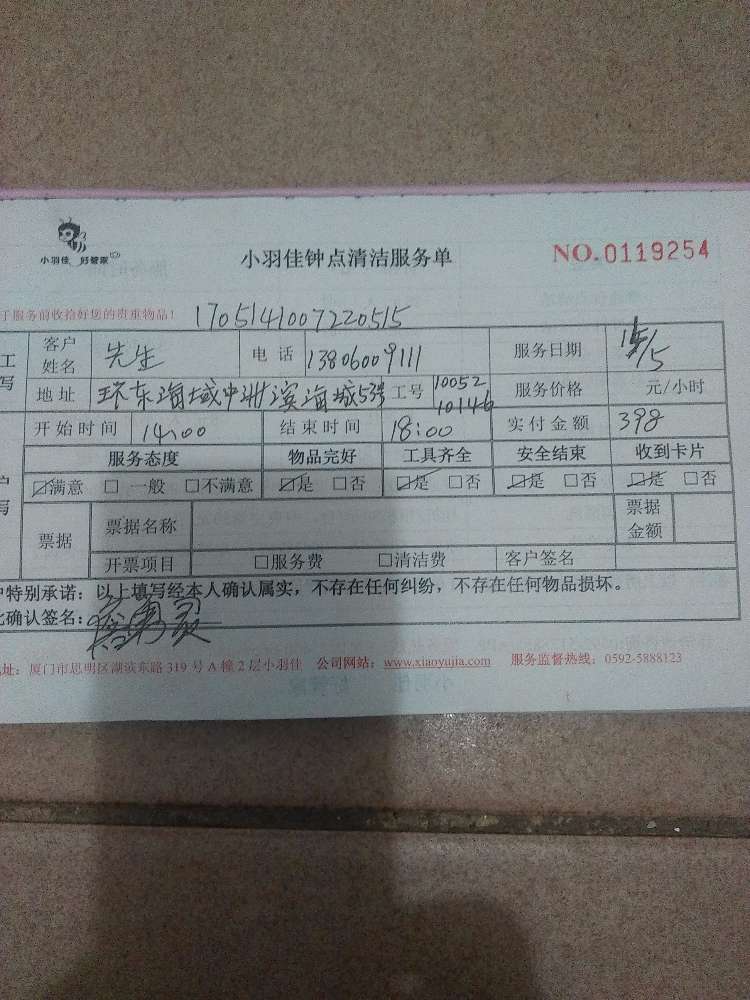 小羽佳 好管家
小羽佳钟点清洁服务单
NO.0119254
于服务前收拾好您的贵重物品！
1705141007220515
工 客户姓名 先生 电话 13806009111 服务日期 15/5
写 地址 环东海域中洲滨海城53号 工号 10052 10146 服务价格 元/小时
开始时间 14:00 结束时间 18:00 实付金额 398
服务态度 物品完好 工具齐全 安全结束 收到卡片
户 ☑满意 □一般 □不满意 ☑是 □否 ☑是 □否 ☑是 □否 ☑是 □否
写 票据 票据名称 票据金额
开票项目 □服务费 □清洁费 客户签名
户特别承诺：以上填写经本人确认属实，不存在任何纠纷，不存在任何物品损坏。
此确认签名：
地址：厦门市思明区湖滨东路319号A幢2层小羽佳 公司网站：www.xiaoyujia.com 服务监督热线：0592-5888123